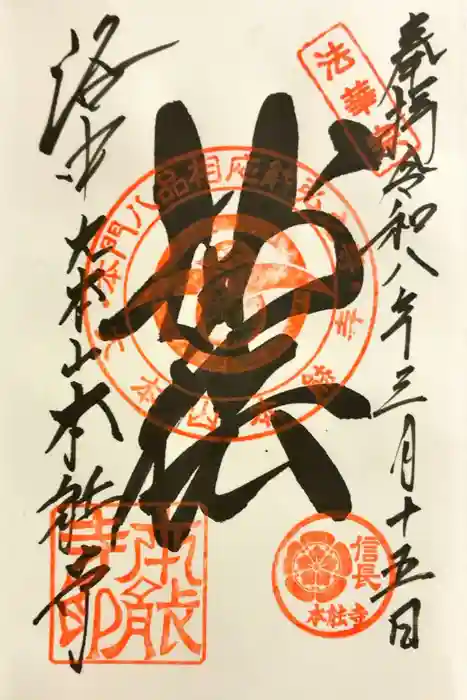 奉拝 令和八年三月十五日
法華宗
妙法
信長
本能寺
洛中 大本山 本能寺
本能寺印